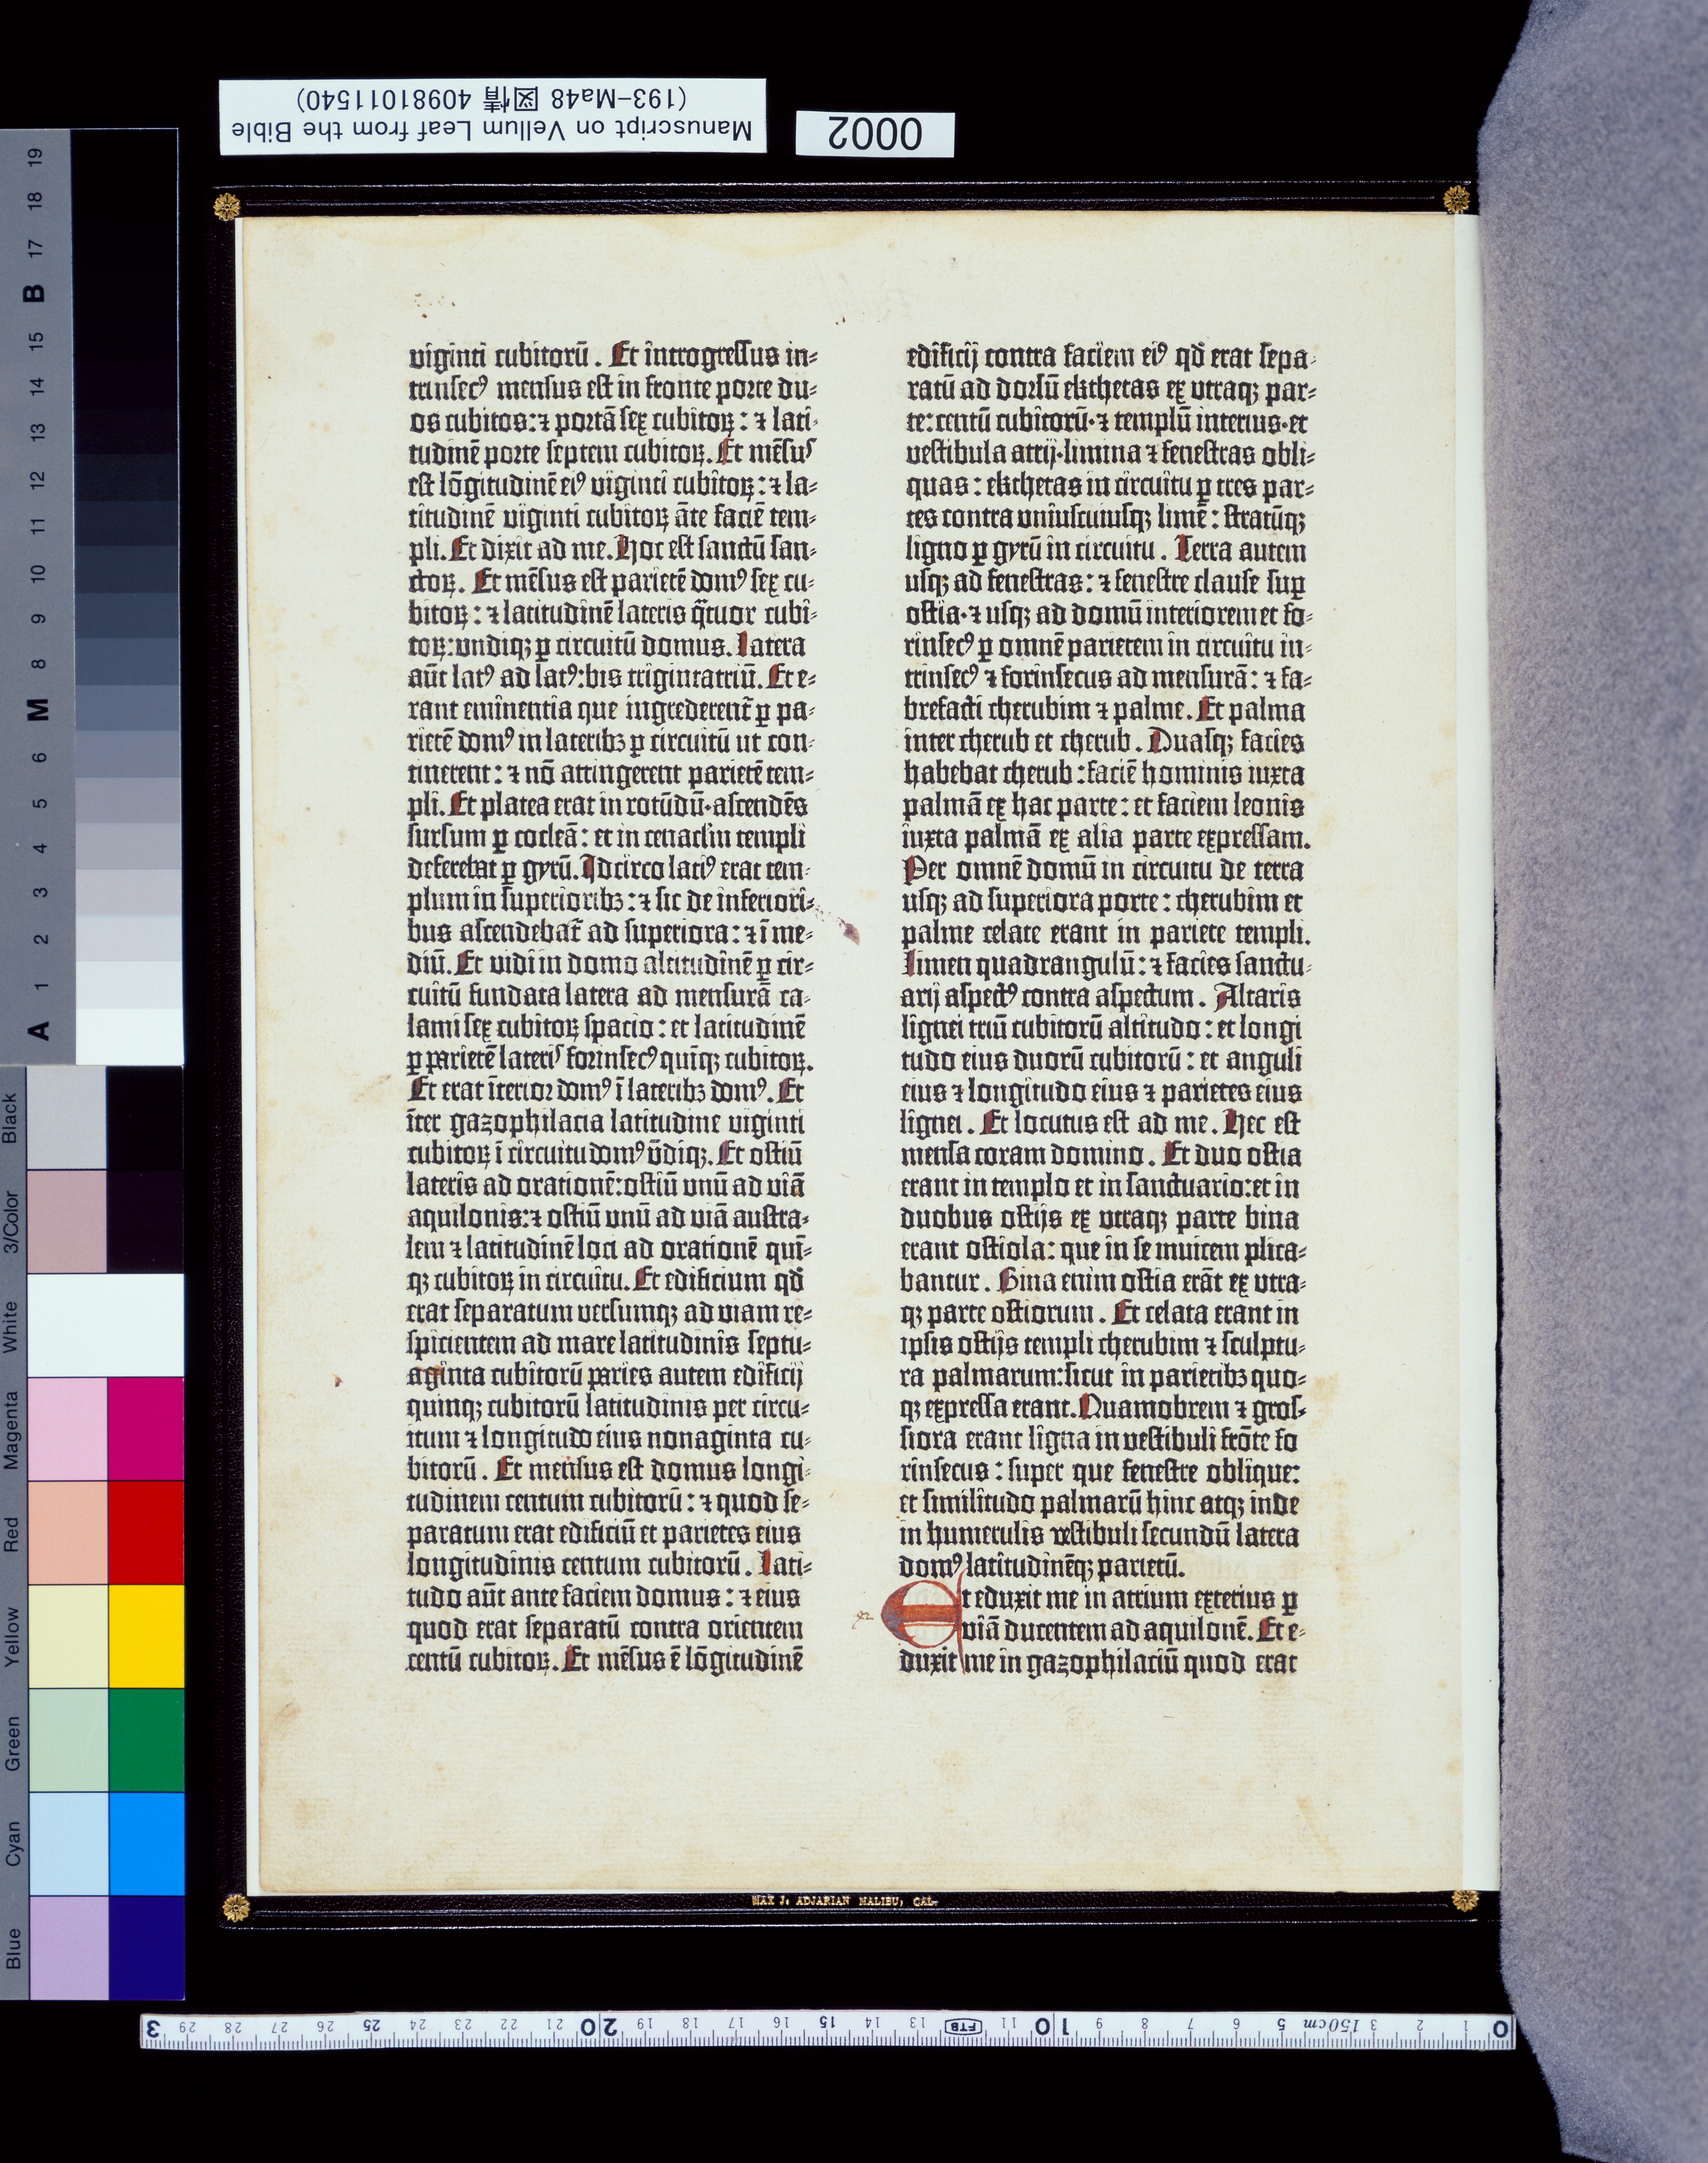 Manuscript on Vellum Leaf from the Bible
(193-Ma48 図情 40981011540)
0002
viginti cubitorū. Et introgressus in=
trinsecꝰ mensus est in fronte porte du=
os cubitos: ⁊ portā sex cubitoꝝ: ⁊ lati=
tudinē porte septem cubitoꝝ. Et mēsus
est lōgitudinē eiꝰ viginti cubitoꝝ: ⁊ la=
titudinē viginti cubitoꝝ āte faciē tem=
pli. Et dixit ad me. Hoc est sanctū san=
ctoꝝ. Et mēsus est parietē domꝰ sex cu=
bitoꝝ: ⁊ latitudinē lateris q̄tuor cubi=
toꝝ: vndiqꝫ ꝑ circuitū domus. Latera
aūt latꝰ ad latꝰ: bis trigintatriū. Et e=
rant eminentia que ingrederent̄ ꝑ pa=
rietē domꝰ in lateribꝫ ꝑ circuitū ut con=
tinerent: ⁊ nō attingerent parietē tem=
pli. Et platea erat in rotūdū·ascendēs
sursum ꝑ cocleā: et in cenaclm templi
deferebat ꝑ gyrū. Idcirco latiꝰ erat tem=
plum in superioribꝫ: ⁊ sic de inferiori=
bus ascendebat̄ ad superiora: ⁊ ī me=
diū. Et vidi in domo altitudinē ꝑ cir=
cuitū fundata latera ad mensurā ca=
lami sex cubitoꝝ spacio: et latitudinē
ꝑ parietē lateris forinsecꝰ quīqꝫ cubitoꝝ.
Et erat īterior domꝰ ī lateribꝫ domꝰ. Et
īter gazophilacia latitudine viginti
cubitoꝝ ī circuitu domꝰ ūdiqꝫ. Et ostiū
lateris ad orationē: ostiū vnū ad viā
aquilonis: ⁊ ostiū vnū ad viā austra=
lem ⁊ latitudinē loci ad orationē quī=
qꝫ cubitoꝝ in circuitu. Et edificium qd̄
erat separatum versumqꝫ ad viam re=
spicientem ad mare latitudinis septu=
aginta cubitorū paries autem edificij
quinqꝫ cubitorū latitudinis per circu=
itum ⁊ longitudo eius nonaginta cu=
bitorū. Et mensus est domus longi=
tudinem centum cubitorū: ⁊ quod se=
paratum erat edificiū et parietes eius
longitudinis centum cubitorū. Lati=
tudo aūt ante faciem domus: ⁊ eius
quod erat separatū contra orientem
centū cubitoꝝ. Et mēsus ē lōgitudinē
edificij contra faciem eiꝰ qd̄ erat sepa=
ratū ad dorsū ekthetas ex vtraqꝫ par=
te: centū cubitorū·⁊ templū interius·et
vestibula atrij·limina ⁊ fenestras obli=
quas: ekthetas in circuitu ꝑ tres par=
tes contra vniuscuiusqꝫ limē: stratūqꝫ
ligno ꝑ gyrū in circuitu. Terra autem
usqꝫ ad fenestras: ⁊ fenestre clause suꝑ
ostia·⁊ usqꝫ ad domū interiorem et fo=
rinsecꝰ ꝑ omnē parietem in circuitu in=
trinsecꝰ ⁊ forinsecus ad mensurā: ⁊ fa=
brefacti cherubim ⁊ palme. Et palma
inter cherub et cherub. Duasqꝫ facies
habebat cherub: faciē hominis iuxta
palmā ex hac parte: et faciem leonis
iuxta palmā ex alia parte expressam.
Per omnē domū in circuitu de terra
usqꝫ ad superiora porte: cherubim et
palme celate erant in pariete templi.
Limen quadrangulū: ⁊ facies sanctu=
arij aspectꝰ contra aspectum. Altaris
lignei triū cubitorū altitudo: et longi
tudo eius duorū cubitorū: et anguli
eius ⁊ longitudo eius ⁊ parietes eius
lignei. Et locutus est ad me. Hec est
mensa coram domino. Et duo ostia
erant in templo et in sanctuario: et in
duobus ostijs ex vtraqꝫ parte bina
erant ostiola: que in se inuicem plica=
bantur. Bina enim ostia erāt ex vtra=
qꝫ parte ostiorum. Et celata erant in
ipsis ostijs templi cherubim ⁊ sculptu=
ra palmarum: sicut in parietibꝫ quo=
qꝫ expressa erant. Quamobrem ⁊ gros=
siora erant ligna in vestibuli frōte fo
rinsecus: super que fenestre oblique:
et similitudo palmarū hinc atqꝫ inde
in humerulis vestibuli secundū latera
domꝰ latitudinēqꝫ parietū.
Et eduxit me in atrium exterius ꝑ
viā ducentem ad aquilonē. Et e=
duxit me in gazophilaciū quod erat
MAX J. ADJARIAN MALIBU, CAL.
A 1 2 3 4 5 6 M 8 9 10 11 12 13 14 15 B 17 18 19
Blue
Cyan
Green
Yellow
Red
Magenta
White
3/Color
Black
0 1 2 3 150cm 5 6 7 8 9 10 11 FTB 13 14 15 16 17 18 19 20 21 22 23 24 25 26 27 28 29 3